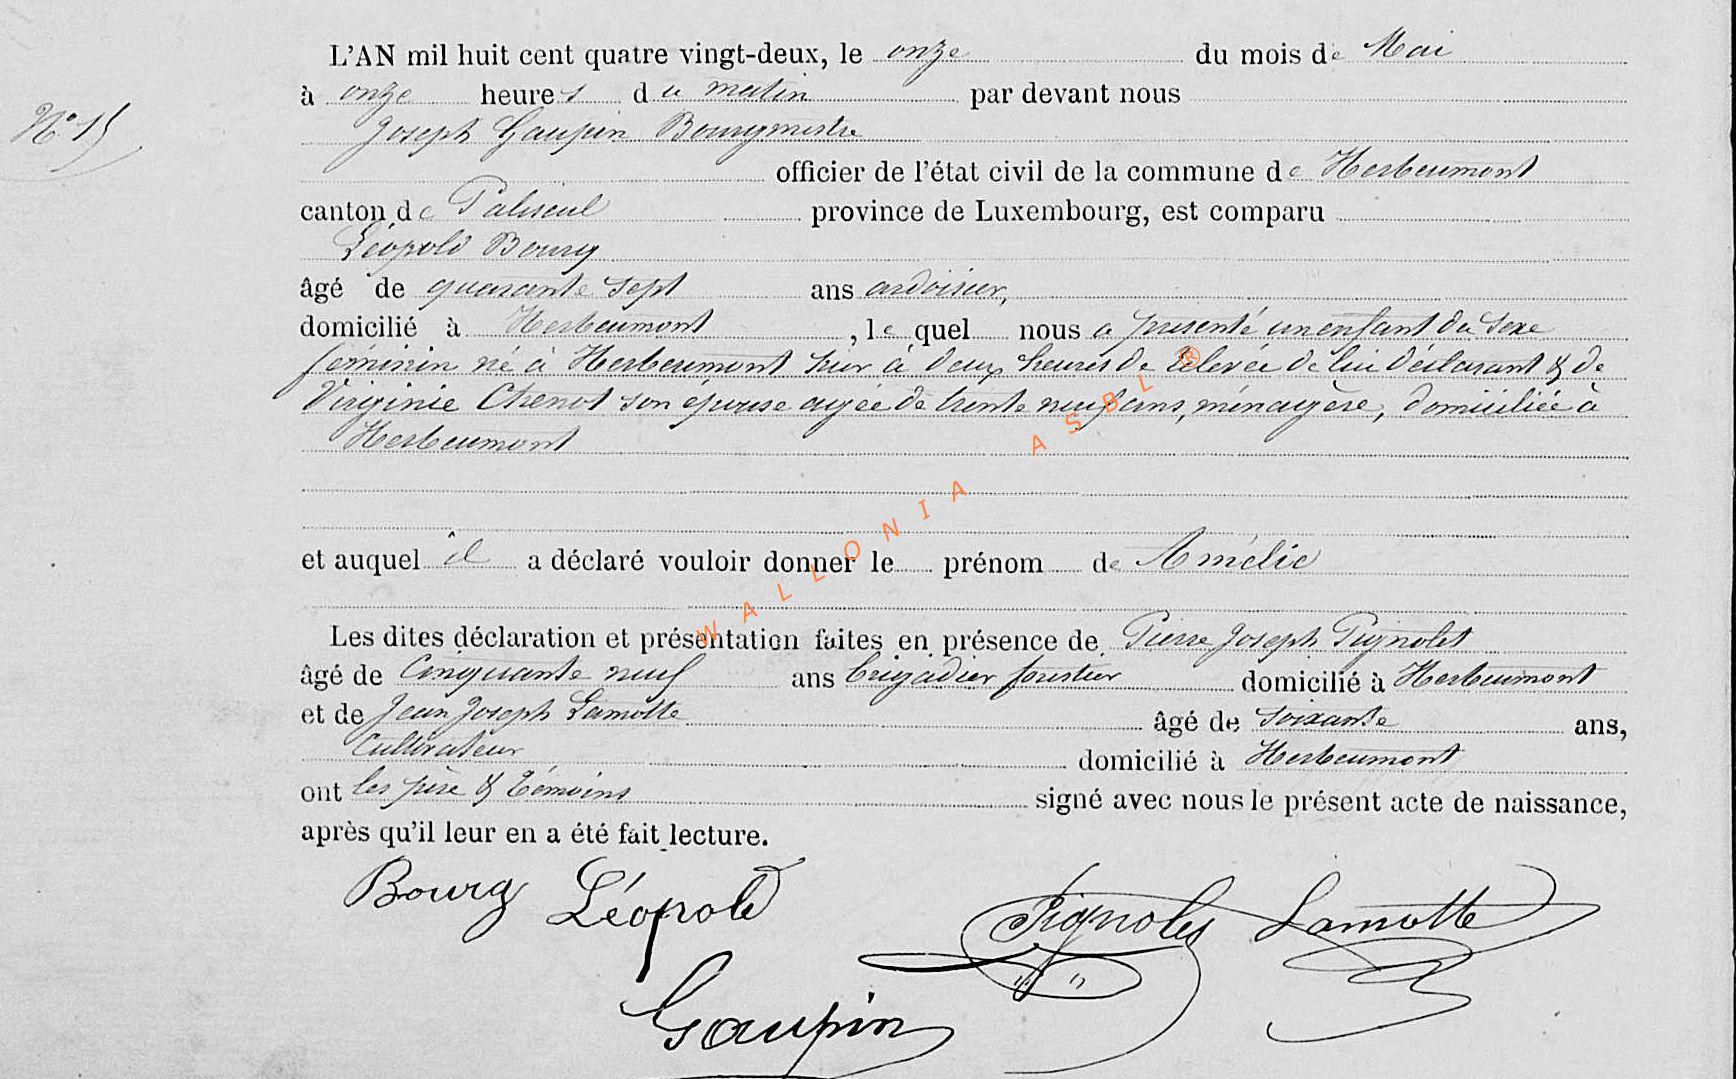 L'AN mil huit cent quatre vingt-deux, le onze du mois de Mai
N° 15
à onze heures du matin par devant nous
Joseph Gaupin Bourgmestre
officier de l'état civil de la commune de Herbeumont
canton de Paliseul province de Luxembourg, est comparu
Léopold Bourg
âgé de quarante sept ans ardoisier,
domicilié à Herbeumont, le quel nous a présenté un enfant du sexe
féminin né à Herbeumont hier à deux heures de relevée de lui déclarant & de
Virginie Chenot son épouse agée de trente neuf ans, ménagère, domiciliée à
Herbeumont
WALLONIA ASBL ®
et auquel il a déclaré vouloir donner le prénom de Amélie
Les dites déclaration et présentation faites en présence de Pierre Joseph Pignolet
âgé de Cinquante neuf ans brigadier forestier domicilié à Herbeumont
et de Jean Joseph Lamotte âgé de soixante ans,
Cultivateur domicilié à Herbeumont
ont les père & témoins signé avec nous le présent acte de naissance,
après qu'il leur en a été fait lecture.
Bourg Léopold Pignolet Lamotte
Gaupin